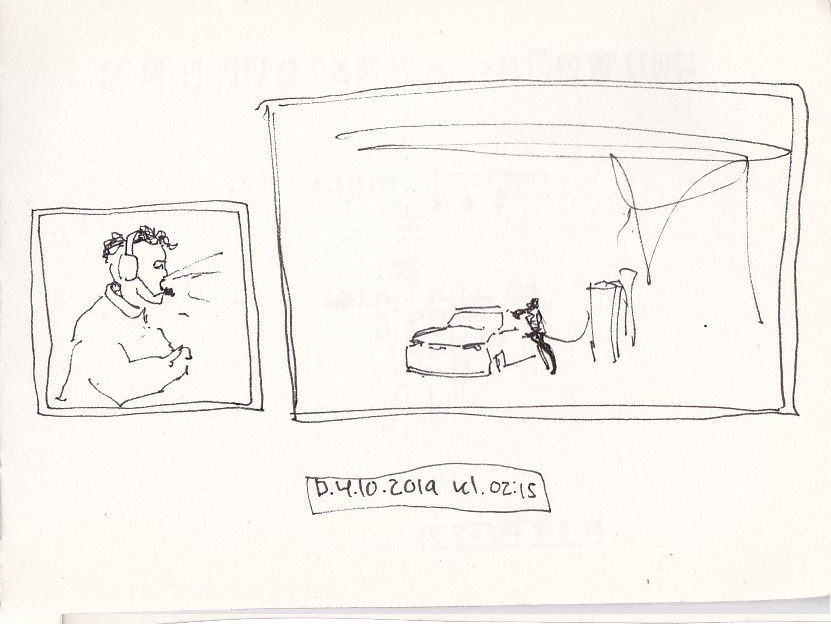 D.4.10.2019 kl.02:15